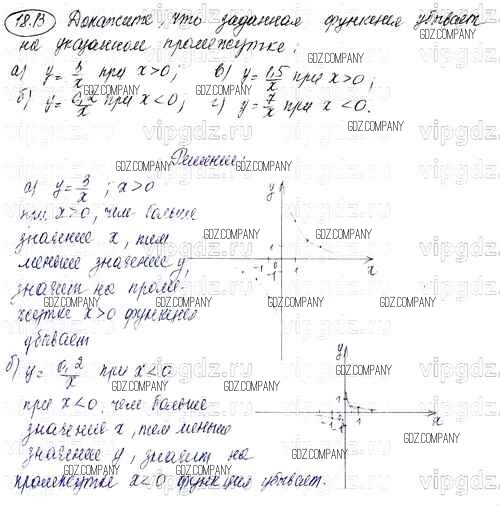 18.13 Докажите, что заданная функция убывает
на указанном промежутке:
а) y = 3/x при x > 0; в) y = 1,5/x при x > 0;
б) y = 0,2/x при x < 0; г) y = 7/x при x < 0.
Решение:
а) y = 3/x ; x > 0
при x > 0, чем больше
значение x, тем
меньше значение y,
значит на проме-
жутке x > 0 функция
убывает
б) y = 0,2/x при x < 0
при x < 0, чем больше
значение x, тем меньше
значение y, значит на
промежутке x < 0 функция убывает.
y
1
-1 0 1 x
-1
y
1
-1 0 1 x
-1
vipgdz.ru
GDZ.COMPANY